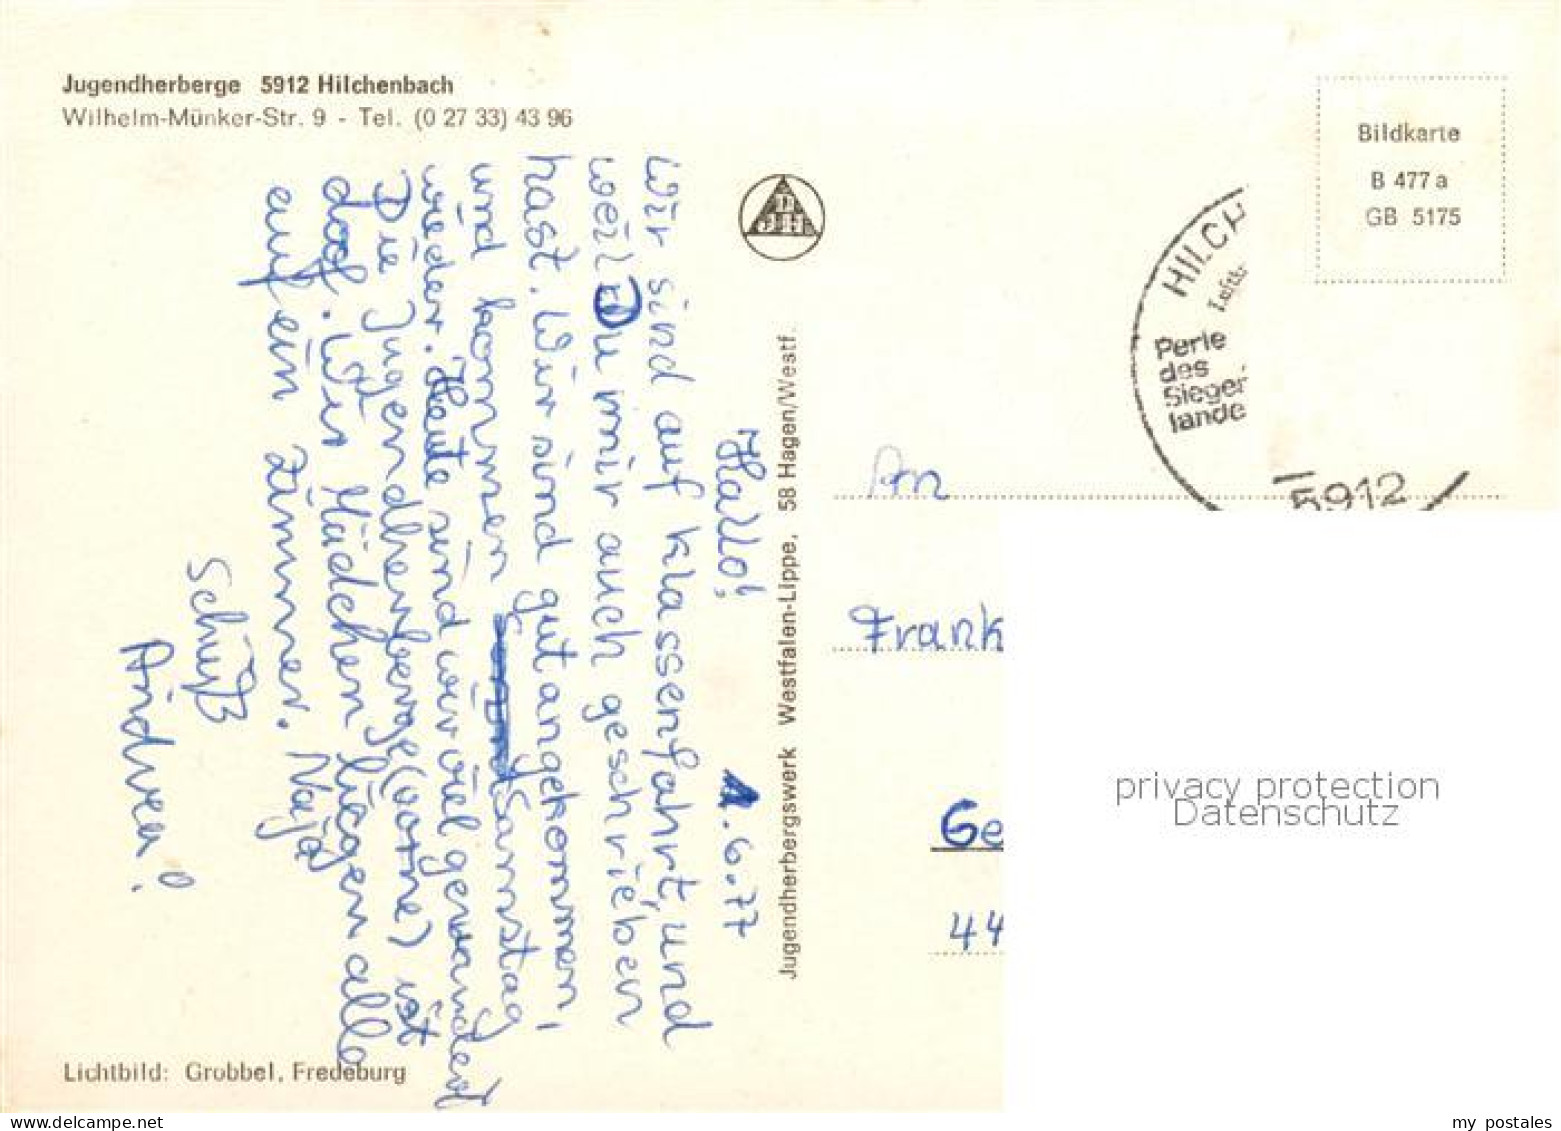 Jugendherberge 5912 Hilchenbach
Wilhelm-Münker-Str. 9 - Tel. (0 27 33) 43 96
Bildkarte
B 477 a
GB 5175
HILCH
Luftk
Perle
des
Sieger
lande
5912
Hallo! 1.6.77
Wir sind auf klassenfahrt, und
weil Du mir auch geschrieben
hast. Wir sind gut angekommen,
und kommen Samstag
wieder. Heute sind wir viel gewandert
Die Jugendherberge (vorne) ist
doof. Wir Mädchen liegen alle
auf ein Zimmer. Naja
Schuß
Andrea!
Jugendherbergswerk Westfalen-Lippe, 58 Hagen/Westf.
An
Frank
Ge
44
privacy protection
Datenschutz
Lichtbild: Grobbel, Fredeburg
my postales